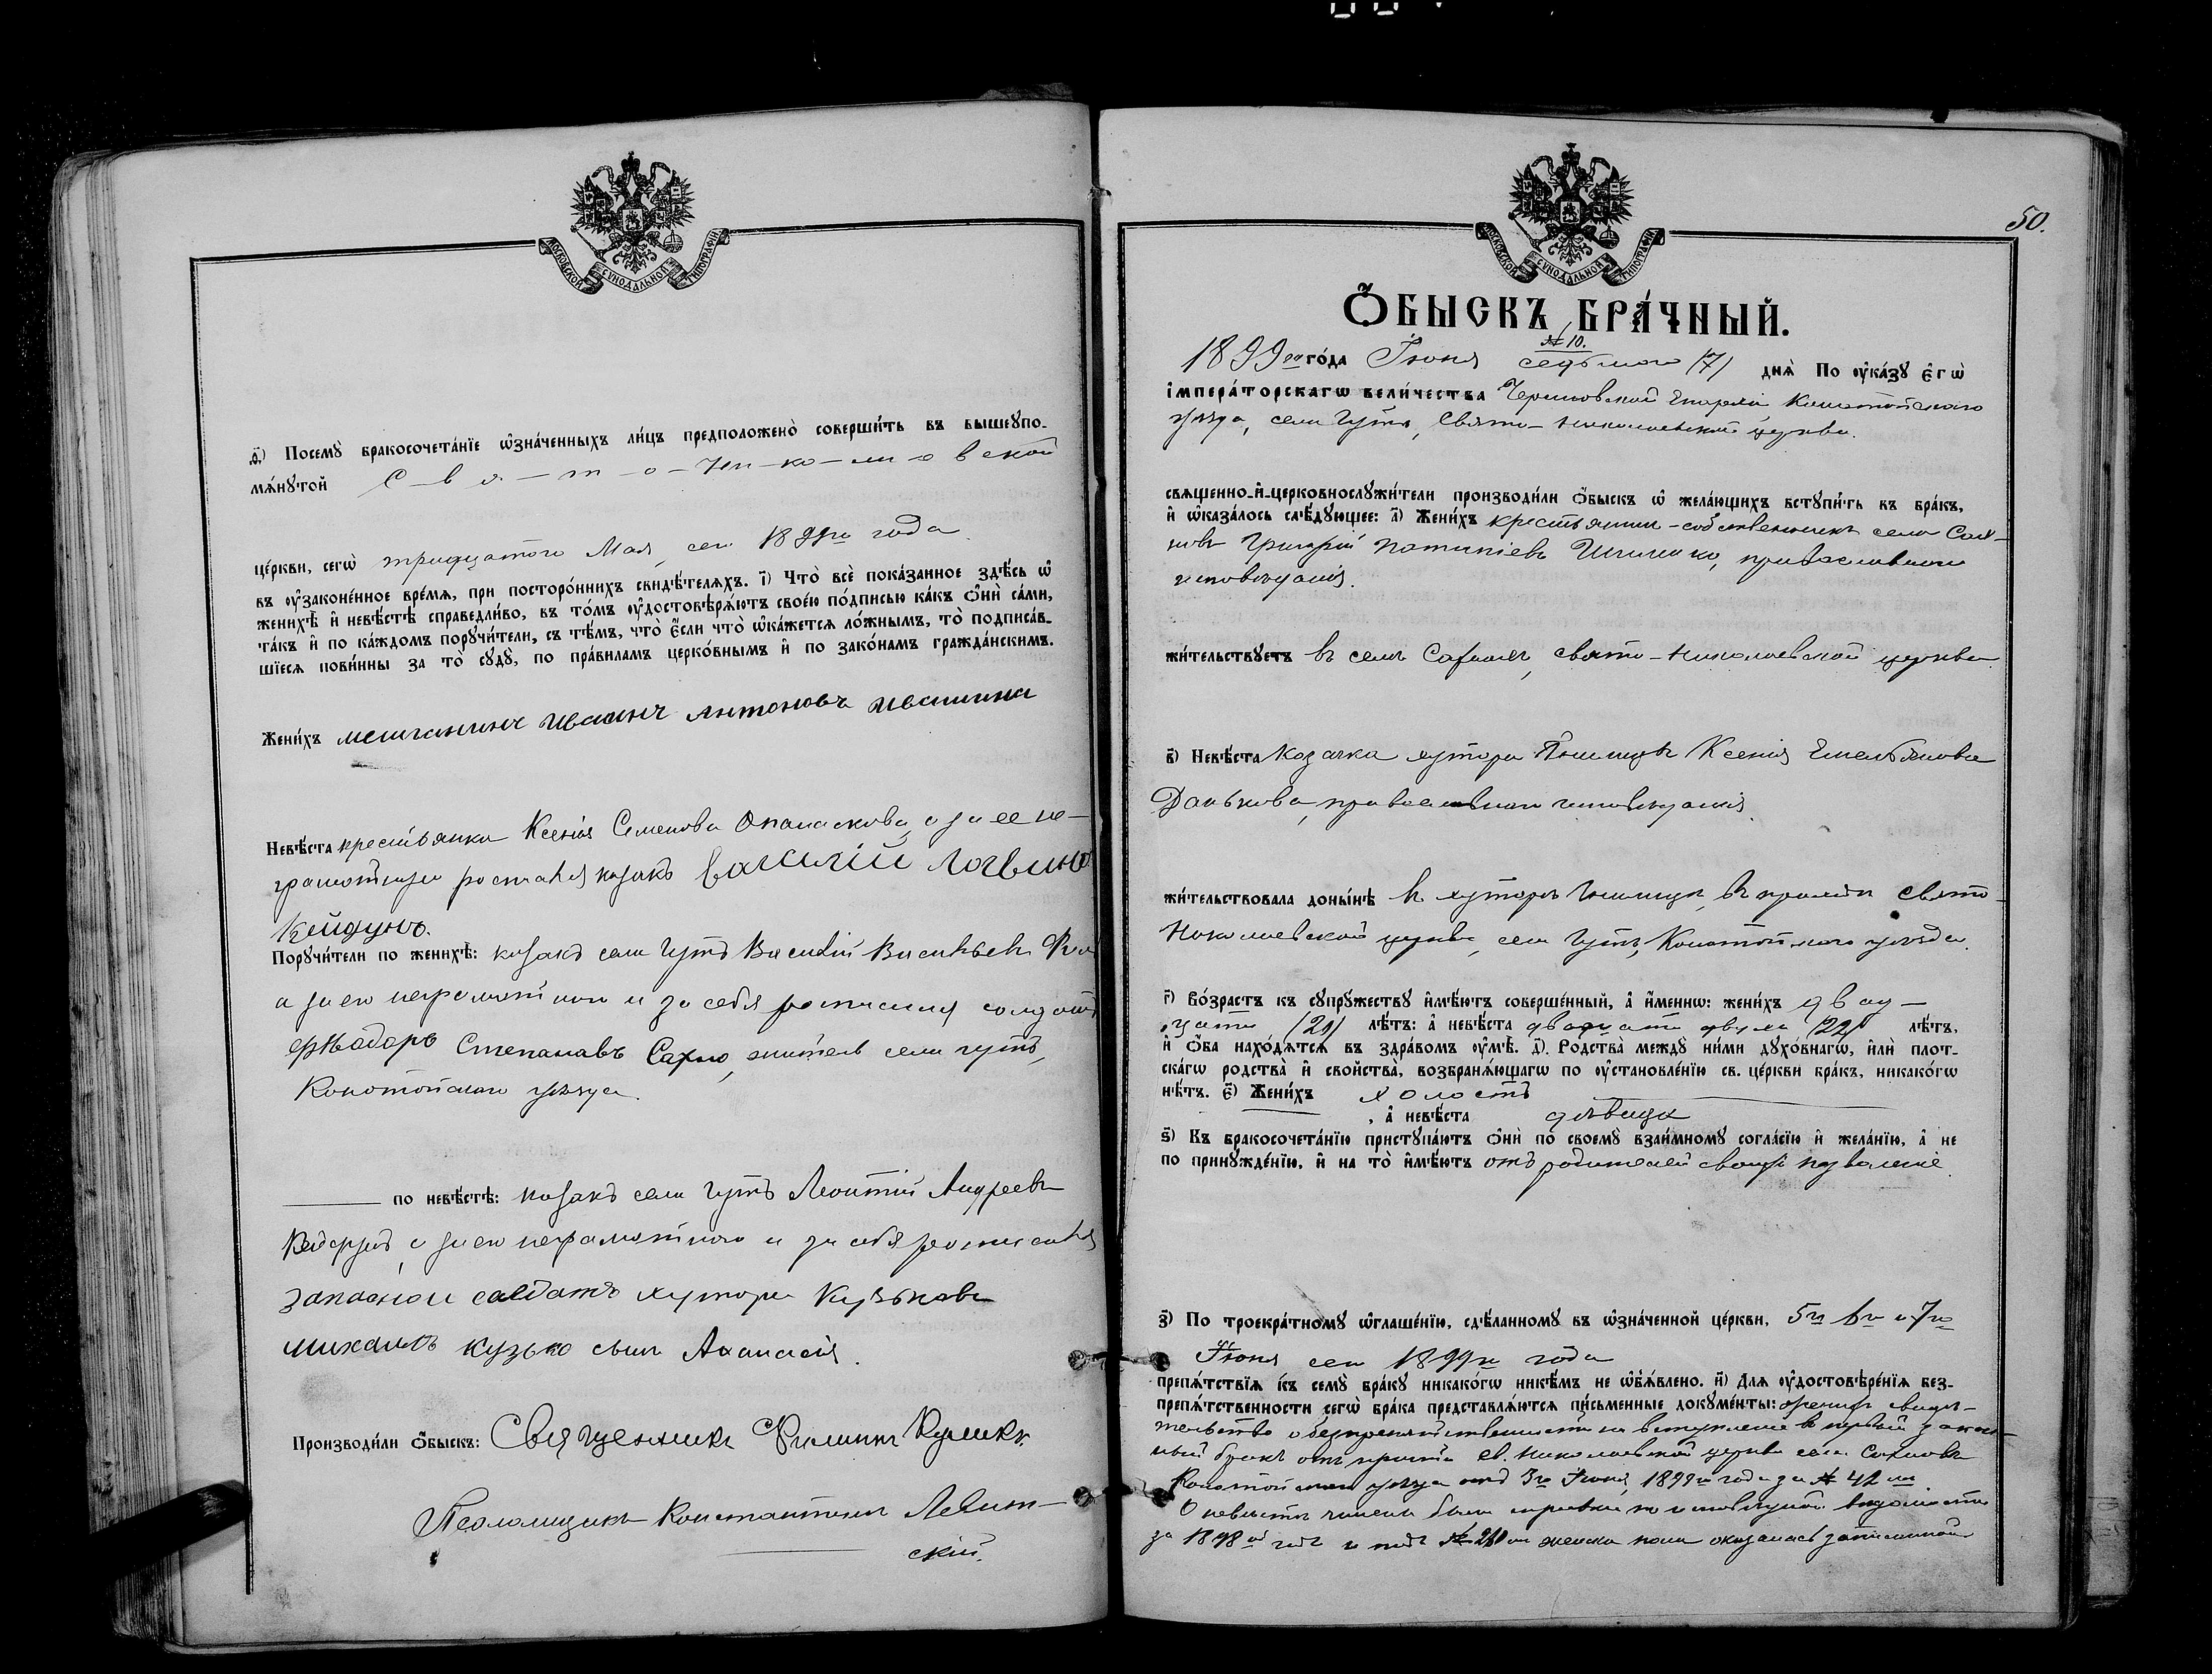 МОСКОВСКОЙ СѴНОДАЛЬНОЙ ТИПОГРАФІИ
д҃і) Посемꙋ̀ бракосочета́нїе ѡ҆зна́ченныхъ ли́цъ предположено̀ соверши́ть въ вышеꙋпо-
мѧ́нꙋтой С-в-я-т-о-Ни-ко-ла-е в ской
це́ркви, сегѡ̀ тридцатого Мая, сего 1899го года
въ ᲂу҆законе́нное вре́мѧ, при посторо́ннихъ свидѣ́телѧхъ. і҃) Что̀ всѐ пока́занное здѣ́сь ѡ҆
женихѣ̀ и҆ невѣ́стѣ справедли́во, въ то́мъ ᲂу҆достовѣрѧ́ютъ свое́ю по́дписью ка́къ ѻ҆нѝ са́ми,
та́къ и҆ по ка́ждомъ порꙋчи́тели, съ тѣ́мъ, что̀ є҆́сли что̀ ѡ҆ка́жетсѧ ло́жнымъ, то̀ подписа́в-
шїесѧ пови́нны за то̀ сꙋдꙋ̀, по пра́виламъ церко́внымъ и҆ по зако́намъ гражда́нскимъ.
Жени́хъ мещанинъ Иваинъ Антоновъ Ивашина
Невѣ́ста крестьянка Ксенія Семенова Опанаскова, а за ее не-
грамотную росписался козакъ Василій Логвино
Кейдунъ.
Порꙋчи́тели по женихѣ̀: козакъ села Гутъ Василій Васильевъ
а за его неграмотного и за себя росписался солдатъ
Фѣодоръ Степанавъ Сахно, житель села Гутъ,
Конотопского уѣзда.
по невѣ́стѣ: козакъ села Гутъ Леонтій Андреевъ
а за его неграмотного и за себя росписался
запасной салдатъ хутора Кузьковъ
Михаилъ Кузько сынъ Аѳанасія.
Производи́ли ѻ҆́быскъ: Священникъ Филиппъ Куликъ.
Псаломщикъ Константинъ Левит-
скій.
50.
МОСКОВСКОЙ СѴНОДАЛЬНОЙ ТИПОГРАФІИ
Ѻ҆́БЫСКЪ БРА́ЧНЫЙ.
№ 10.
1899го го́да Іюня седьмого (7) днѧ̀ По ᲂу҆ка́зꙋ є҆гѡ̀
і҆мпера́торскагѡ вели́чества Черниговской Епархіи Конотопского
уѣзда, села Гутъ, Свято-Николаевской церкви.
свѧщенно-и҆-церковнослꙋжи́тели производи́ли ѻ҆́быскъ ѡ҆ жела́ющихъ встꙋпи́ть въ бра́къ,
и҆ ѡ҆каза́лось слѣ́дꙋющее: а҃) Жени́хъ крестьянин-собственникъ села Сах-
новъ Григорій Шишико, православного
исповѣданія.
жи́тельствꙋетъ въ селѣ Сахновъ, свято-Николаевской церкви
в҃) Невѣ́ста Козачка хутора Ксенія Емельянова
Данькова, православного исповѣданія.
жи́тельствовала доны́нѣ в хуторѣ въ приходѣ Свято-
Николаевской церкви, села Гутъ, Конотопского уѣзда.
г҃) Во́зрастъ къ сꙋпрꙋжествꙋ и҆мѣ́ютъ соверше́нный, а҆ и҆́менно: жени́хъ двад-
цати (21) лѣ́тъ: а҆ невѣ́ста двадцати двухъ (22) лѣ́тъ,
и҆ ѻ҆́ба нахо́дѧтсѧ въ здра́вомъ ᲂу҆мѣ̀. д҃). Родства̀ междꙋ̀ ни́ми дꙋхо́внагѡ, и҆лѝ плот-
ска́гѡ родства̀ и҆ свойства̀, возбранѧ́ющагѡ по ᲂу҆становле́нїю св. це́ркви бра́къ, никако́гѡ
нѣ́тъ. є҃) Жени́хъ холостъ
, а҆ невѣ́ста дѣвица
ѕ҃) Къ бракосочета́нїю пристꙋпа́ютъ ѻ҆нѝ по своемꙋ̀ взаи́мномꙋ согла́сїю и҆ жела́нїю, а҆ не
по принꙋжде́нїю, и҆ на то̀ и҆мѣ́ютъ отъ родителей своихъ позволеніе.
з҃) По троекра́тномꙋ ѡ҆глаше́нїю, сдѣ́ланномꙋ въ ѡ҆зна́ченной це́ркви, 5го 6го и 7го
Іюня сего 1899го года
препѧ́тствїѧ къ семꙋ̀ бра́кꙋ никако́гѡ никѣ́мъ не ѡ҆б̾ѧ́влено. и҃) Длѧ ᲂу҆достовѣре́нїѧ без-
препѧ́тственности сегѡ̀ бра́ка представлѧ́ютсѧ пи́сьменные докꙋме́нты: женихъ свидѣ-
тельство о безпрепятственности на вступленіе в первый закон-
ный бракъ отъ причта св. Николаевской церкви села Сахновъ
Конотопского уѣзда отъ 3го Іюня, 1899го года за № 42мъ
О невѣстѣ чинена была справка по исповѣдной вѣдомости
за 1898ой годъ и подъ № женска пола оказалась записанной